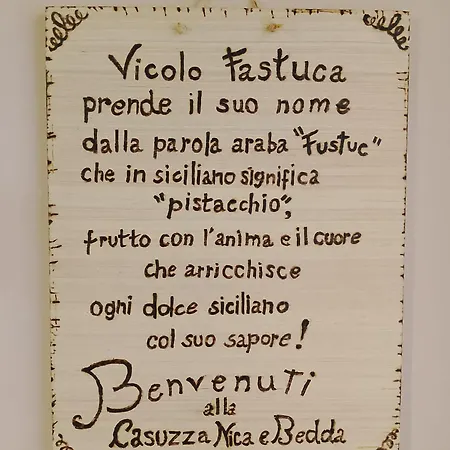 Vicolo Fastuca
prende il suo nome
dalla parola araba "Fustuc"
che in siciliano significa
"pistacchio",
frutto con l'anima e il cuore
che arricchisce
ogni dolce siciliano
col suo sapore!
Benvenuti
alla
Casuzza Nica e Bedda